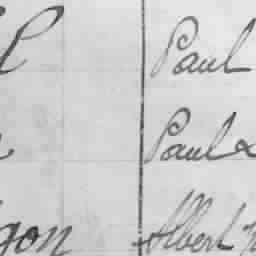 P Paul
Paul &
gon Albert